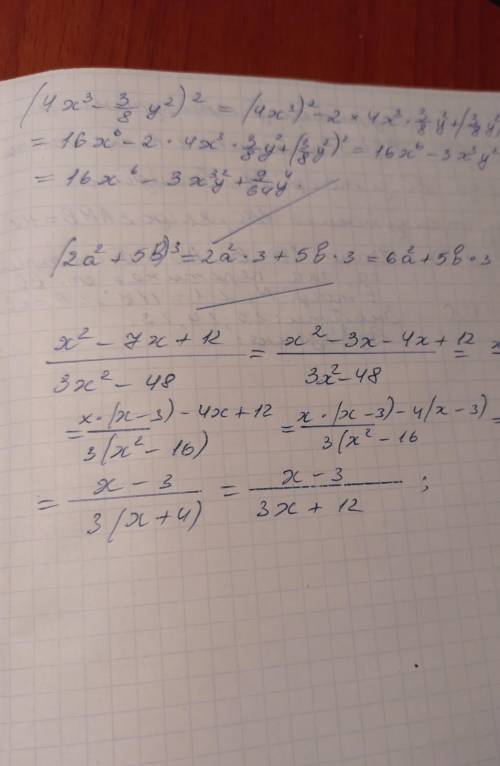 (4x³ - 3/8 y²)² = (4x³)² - 2 × 4x³ · 3/8 y² + (3/8 y²
= 16x⁶ - 2 · 4x³ · 3/8 y² + (3/8 y²)² = 16x⁶ - 3x³y²
= 16x⁶ - 3x³y² + 9/64 y⁴.
(2a² + 5b)³ = 2a² · 3 + 5b · 3 = 6a² + 5b · 3
(x² - 7x + 12)/(3x² - 48) = (x² - 3x - 4x + 12)/(3x² - 48) =
= (x · (x - 3) - 4x + 12)/(3(x² - 16)) = (x · (x - 3) - 4(x - 3))/(3(x² - 16) =
= (x - 3)/(3(x + 4)) = (x - 3)/(3x + 12) ;